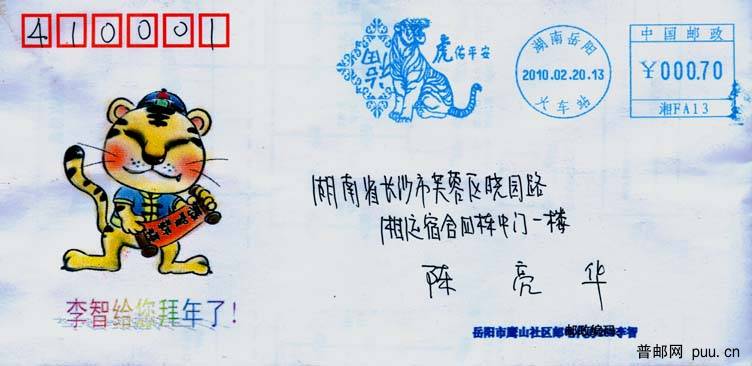 410001
虎佑平安
湖南岳阳
2010.02.20.13
火车站
中国邮政
¥000.70
湘FA13
湖南省长沙市芙蓉区晓园路
湘运宿舍四栋中门一楼
陈亮华
李智给您拜年了！
岳阳市鹰山社区邮
李智
普邮网 puu.cn